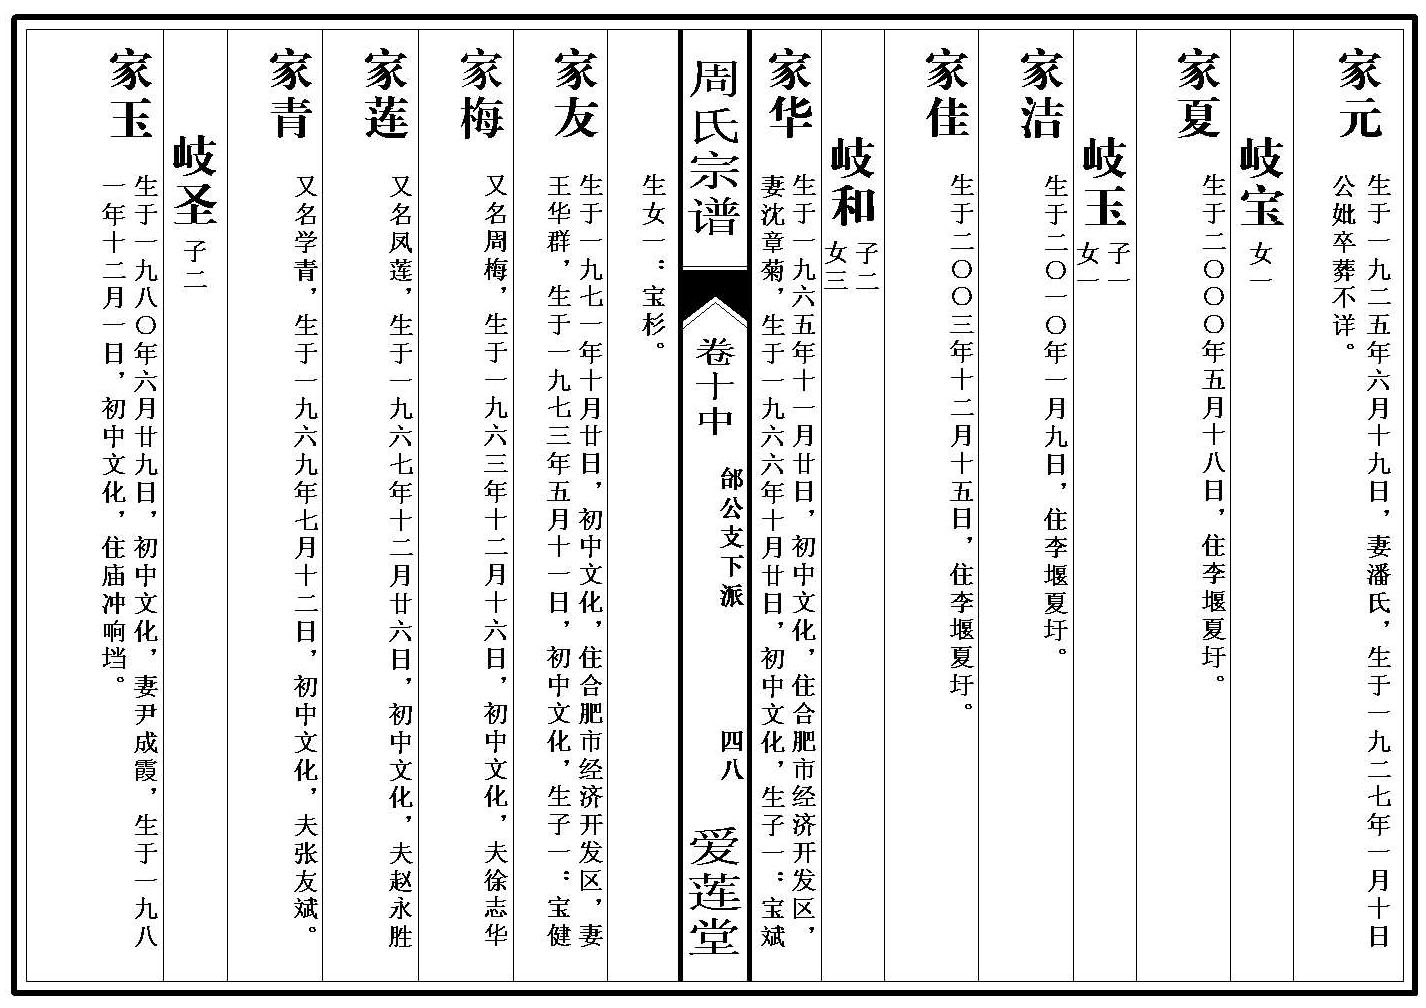 家元
生于一九二五年六月十九日，妻潘氏，生于一九二七年一月十日
公妣卒葬不详。
岐宝
女一
家夏
生于二〇〇〇年五月十八日，住李堰夏圩。
岐玉
子一
女一
家洁
生于二〇一〇年一月九日，住李堰夏圩。
家佳
生于二〇〇三年十二月十五日，住李堰夏圩。
岐和
子二
女三
家华
生于一九六五年十一月廿日，初中文化，住合肥市经济开发区，
妻沈章菊，生于一九六六年十月廿日，初中文化，生子一：宝斌
周氏宗谱
卷十中
邰公支下派
四八
爱莲堂
生女一：宝杉。
家友
生于一九七一年十月廿日，初中文化，住合肥市经济开发区，妻
王华群，生于一九七三年五月十一日，初中文化，生子一：宝健
家梅
又名周梅，生于一九六三年十二月十六日，初中文化，夫徐志华
家莲
又名凤莲，生于一九六七年十二月廿六日，初中文化，夫赵永胜
家青
又名学青，生于一九六九年七月十二日，初中文化，夫张友斌。
岐圣
子二
家玉
生于一九八〇年六月廿九日，初中文化，妻尹成霞，生于一九八
一年十二月一日，初中文化，住庙冲响垱。